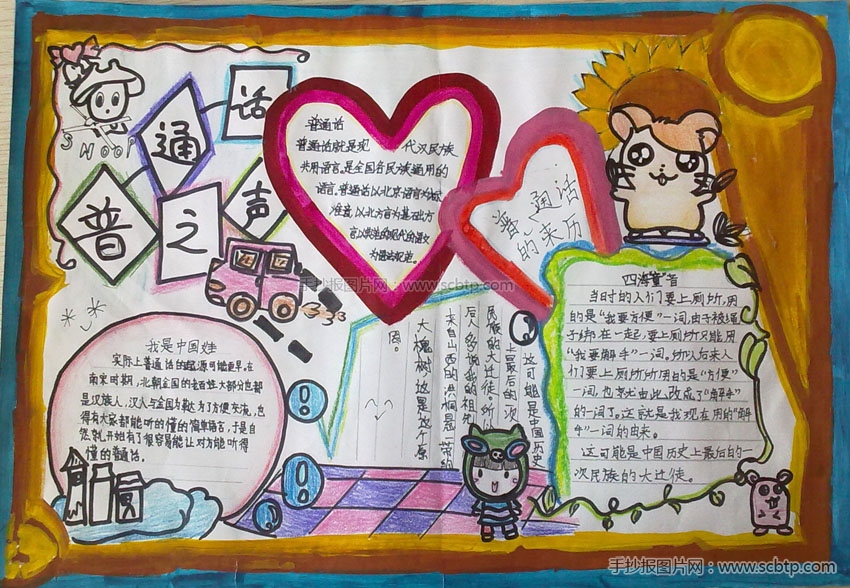 普通话之声
SNOOP
普通话
普通话就是现代汉民族
共用语言,是全国各民族通用的
语言。普通话以北京语音为标
准音,以北方言为基础方
言,以典范的现代的语文
为语法规范。
普通话
的来历
四海皆音
当时的人们要上厕所,用
的是“我要方便”一词,由于被绳
子绑在一起,要上厕所只能用
“我要解手”一词。所以后来人
们要上厕所所用的是“方便”
一词,也就由此改成了“解手”
的一词了。这就是我现在用的“解
手”一词的由来。
这可能是中国历史上最后的一
次民族的大迁徙。
这可能是中国历史
上最后的一次
民族的大迁徙。所以
后人多说我的祖先
来自山西的洪桐县一带的
大槐树,这是这个原
因。
我是中国娃
实际上普通话的起源可能更早。在
南宋时期,北朝全国的老百姓大部分也都
是汉族人,汉人与全国为
了方便交流,也
得有大家都能听的懂的简单语言,于是自
然就开始有了很容易能让对方能听得
懂的普通话。
手抄报图片网:www.scbtp.com
手抄报图片网:www.scbtp.com